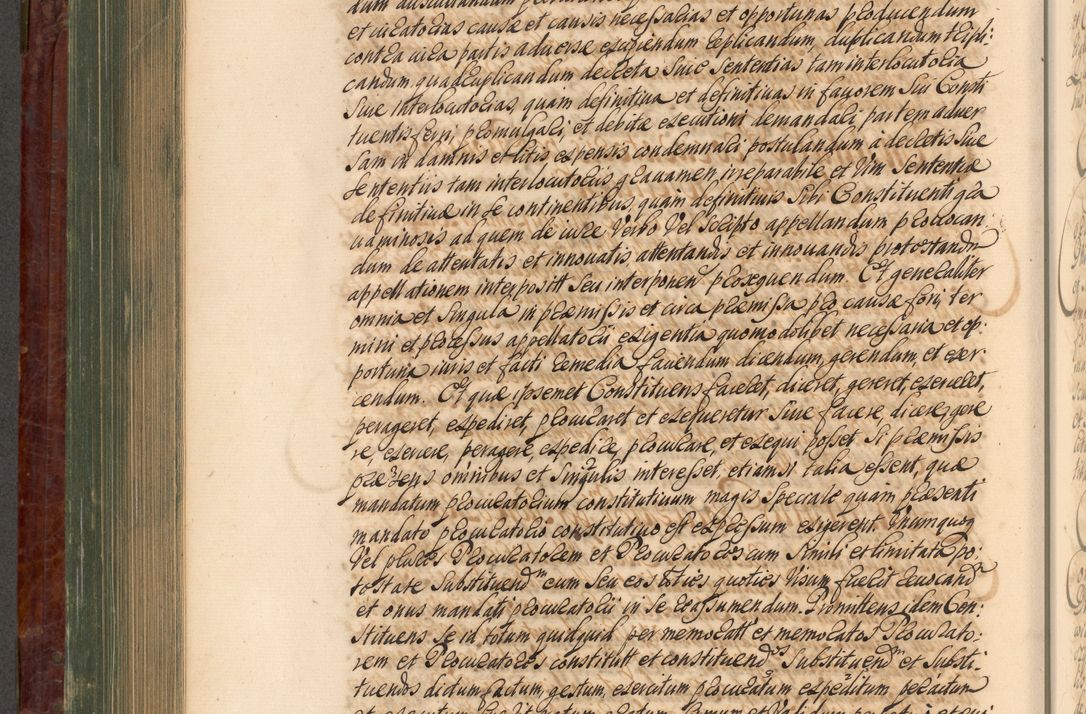 et iuratorias causæ et causis necessarias et opportunas producendum
contra vero partis adversæ excipiendum replicandum, duplicandum tripli:
candum quadruplicandum decreta sive sententias tam interlocutoria
sive interlocutorias, quam definitiva et definitivas in favorem sui Consti
tuentis ferri, promulgari, et debitæ executioni demandari partem adver
sam in damnis et litis expensis condemnari postulandum a decretis sive
sententiis tam interlocutoriis gravamen irreparabile et vim sententiæ
definitivæ in se continentibus, quam definitivis sibi Constituenti gra
vaminosis ad quem de iure verbo vel scripto appellandum provocan
dum de attentatis et innovatis attentandis et innovandis protestandũ
appellationem interposit seu interponen prosequendum. Et generaliter
omnia et singula in præmissis et circa præmissa pro causæ fori, ter
mini et processus appellatorii exigentia quomodolibet necessaria et op:
portuna iuris et facti remedia faciendum dicendum, gerendum, et exer
cendum. Et quæ ipsemet Constituens faceret, diceret, gereret exerceret,
perageret, expediret, procuraret et exequeretur sive facere, dicere gere
re, exercere, peragere expedire, procurare, et exequi posset si præmissis
præsens omnibus et singulis interesset, etiamsi talia essent, quæ
mandatum procuratorium constitutivum magis speciale quam præsenti
mandato procuratorio constitutivo est expressum exigerent Unumquoq
vel plures Procuratorem et Procuratores cum simili et limitata po:
testate substituend cum seu eos toties quoties visum fuerit revocand
et onus mandati procuratorii in se reassumendum. Promittens idem Con:
stituens se id totum quidquid per memoratt et memoratos Procurato:
rem et Procuratores constitutt et constituend substituend et substi:
tuendos dictum, factum, gestum, exercitum procuratum expeditum peractum